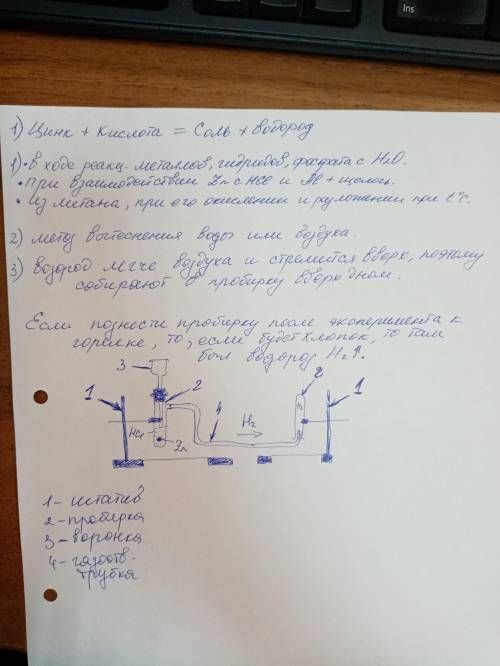 Ins
1) Цинк + кислота = Соль + водород
1) • в ходе реакц. металлов, гидридов, фосфата с H₂O.
• При взаимодействии Zn с HCl и Al + щелочь.
• Из метана, при его окислении и разложении при t°C.
2) метод вытеснения воды или воздуха.
3) водород легче воздуха и стремится вверх, поэтому
собирают в пробирку вверх дном.
Если поднести пробирку после эксперимента к
горелке, то, если будет хлопок, то там
был водород H₂↑.
3
1 2 4 H₂ 2 1
HCl
Zn
H₂
1 - штатив
2 - пробирка
3 - воронка
4 - газоотв.
трубка